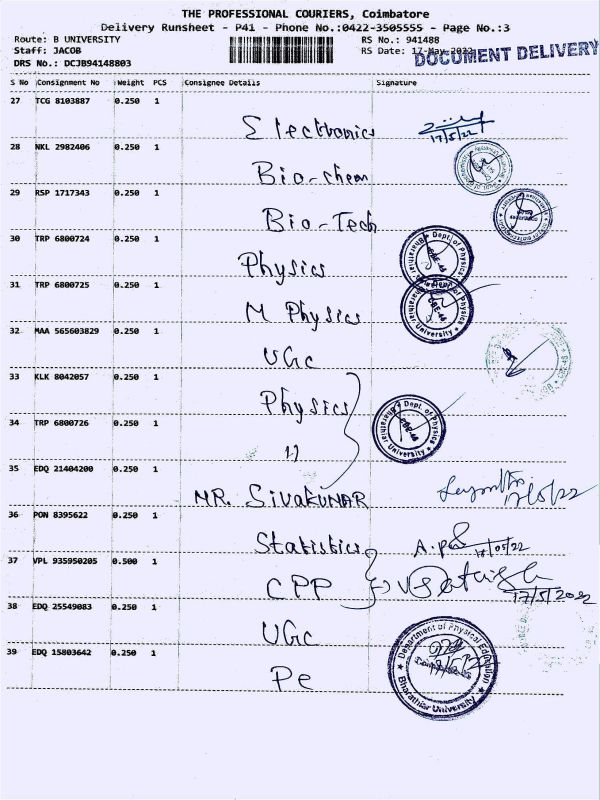 THE PROFESSIONAL COURIERS, Coimbatore
Delivery Runsheet - P41 - Phone No.:0422-3505555 - Page No.:3
Route: B UNIVERSITY RS No.: 941488
Staff: JACOB RS Date: 17-May-2022
DOCUMENT DELIVERY
DRS No.: DCJB94148803
S No Consignment No Weight PCS Consignee Details Signature
27 TCG 8103887 0.250 1
Electronics 17/5/22
28 NKL 2982406 0.250 1
Bio-chem
29 RSP 1717343 0.250 1
Bio-Tech
30 TRP 6800724 0.250 1
Physics
Dept. of Physics
Bharathiar University
31 TRP 6800725 0.250 1
M Physics
Bharathiar University
32 MAA 565603829 0.250 1
UGC
33 KLK 8042057 0.250 1
Physics
Dept. of Physics
Bharathiar University
34 TRP 6800726 0.250 1
11
35 EDQ 21404200 0.250 1
MR. SIVAKUMAR 17/05/22
36 PON 8395622 0.250 1
Statistics 18/05/22
37 VPL 935950205 0.500 1
CPP 17/5/2022
38 EDQ 25549083 0.250 1
UGC
39 EDQ 15803642 0.250 1
Pe
Department of Physical Education
Bharathiar University